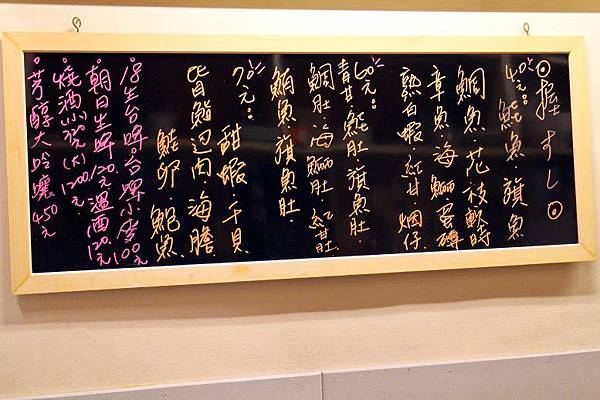 握すし
40元
鮭魚．旗魚
鯛魚．花枝．軟時
章魚．海鱺．蛋磚
熟白蝦．紅甘．烟仔
60元
青甘．鮭肚．旗魚肚
鯛肚．海鱺肚．紅甘肚
鮪魚．旗魚肚
70元
甜蝦．干貝
皆鮨边肉．海膽
鮭卵．鮑魚
18生台啤．台啤小杏100元
朝日生啤120元．溫酒120元
燒酒小沈(大)1200元
芳醇大吟釀450元